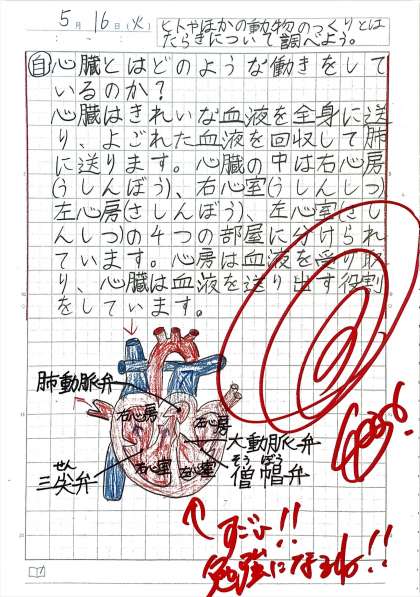 5月16日(火)
ヒトやほかの動物のつくりとは
たらきについて調べよう。
自 心臓とはどのような働きをして
いるのか?
心臓はきれいな血液を全身に送
り、よごれた血液を回収して肺
に送ります。心臓の中は右心房
(うしんぼう)、右心室(うしんしつ)
左心房(さしんぼう)、左心室(さし
んしつ)の4つの部屋に分けられ
ています。心房は血液を受け取
り、心臓は血液を送り出す役割
をしています。
肺動脈弁
右心房
左心房
大動脈弁
せん
三尖弁
右心室
左心室
そう ぼう
僧帽弁
すごい!!
勉強になるわ!!